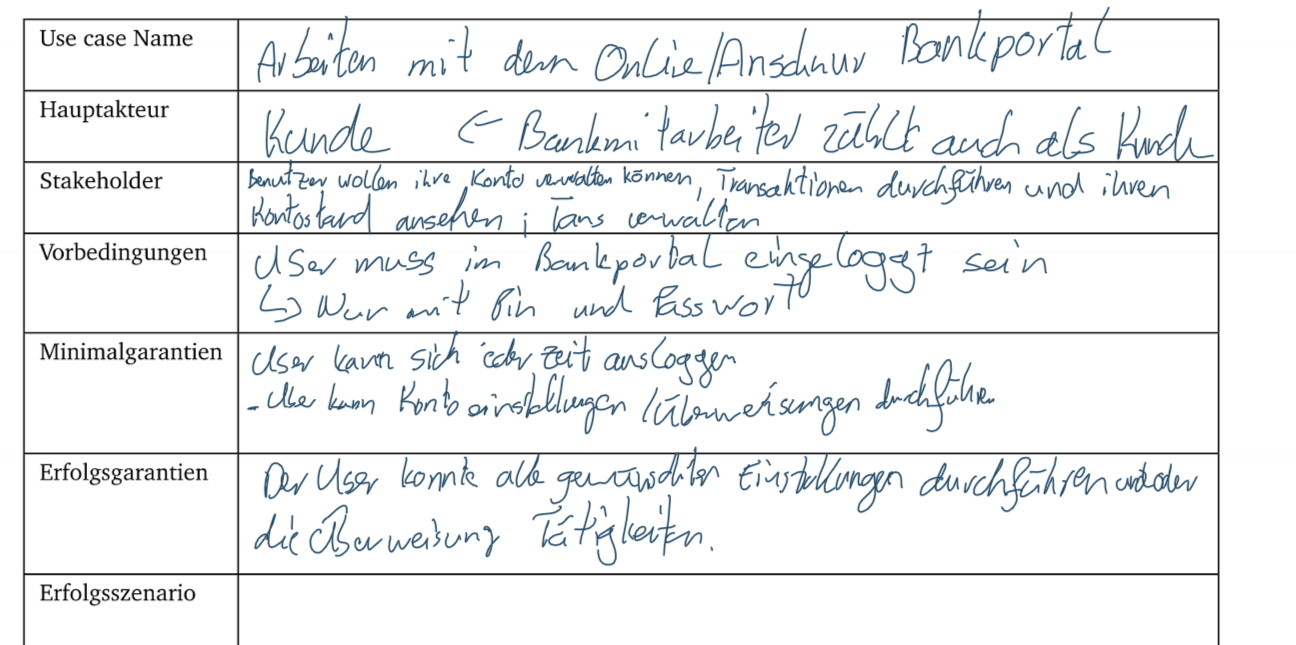 Use case Name
Arbeiten mit dem Onlie/Anschnur Bankportal
Hauptakteur
Kunde ← Bankmitarbeiter zählt auch als Kunde
Stakeholder
Benutzer wollen ihre Konto verwalten können, Transaktionen durchführen und ihren
Kontostand ansehen ; Tans verwalten
Vorbedingungen
User muss im Bankportal eingeloggt sein
↳ Nur mit Pin und Passwort
Minimalgarantien
User kann sich jeder Zeit ausloggen
- User kann Kontoeinstellungen /Überweisungen durchführen
Erfolgsgarantien
Der User konnte alle gewünschten Einstellungen durchführen und oder
die Überweisung Tätigkeiten.
Erfolgsszenario